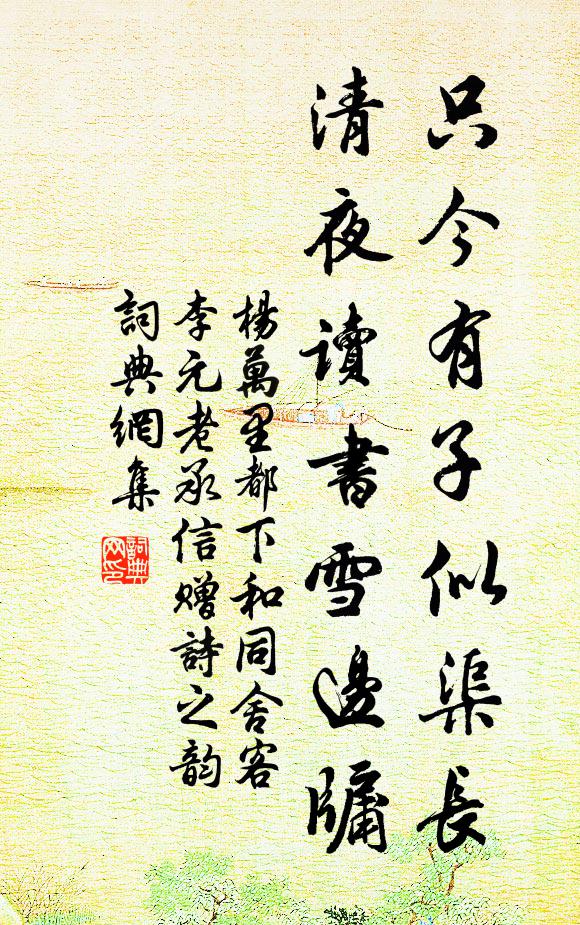 只今有子似渠長
清夜讀書雪邊牖
楊萬里都下和同舍客
李元老承信贈詩之韵
詞典網集
詞典
网印